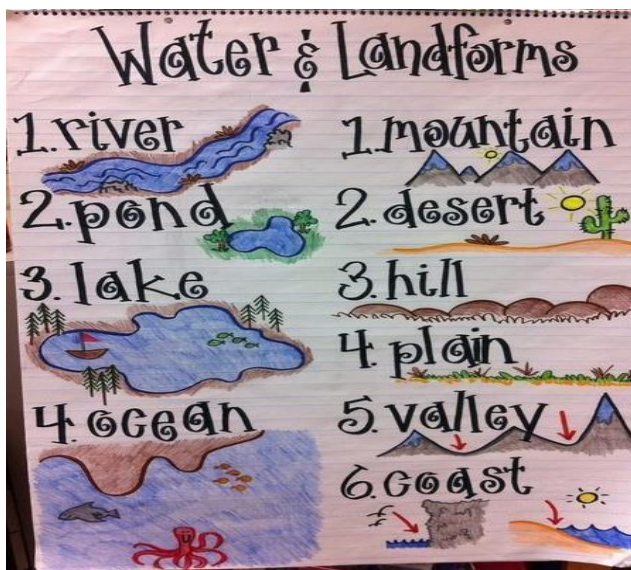 Water & Landforms
1. river
2. pond
3. lake
4. ocean
1. mountain
2. desert
3. hill
4. plain
5. valley
6. coast